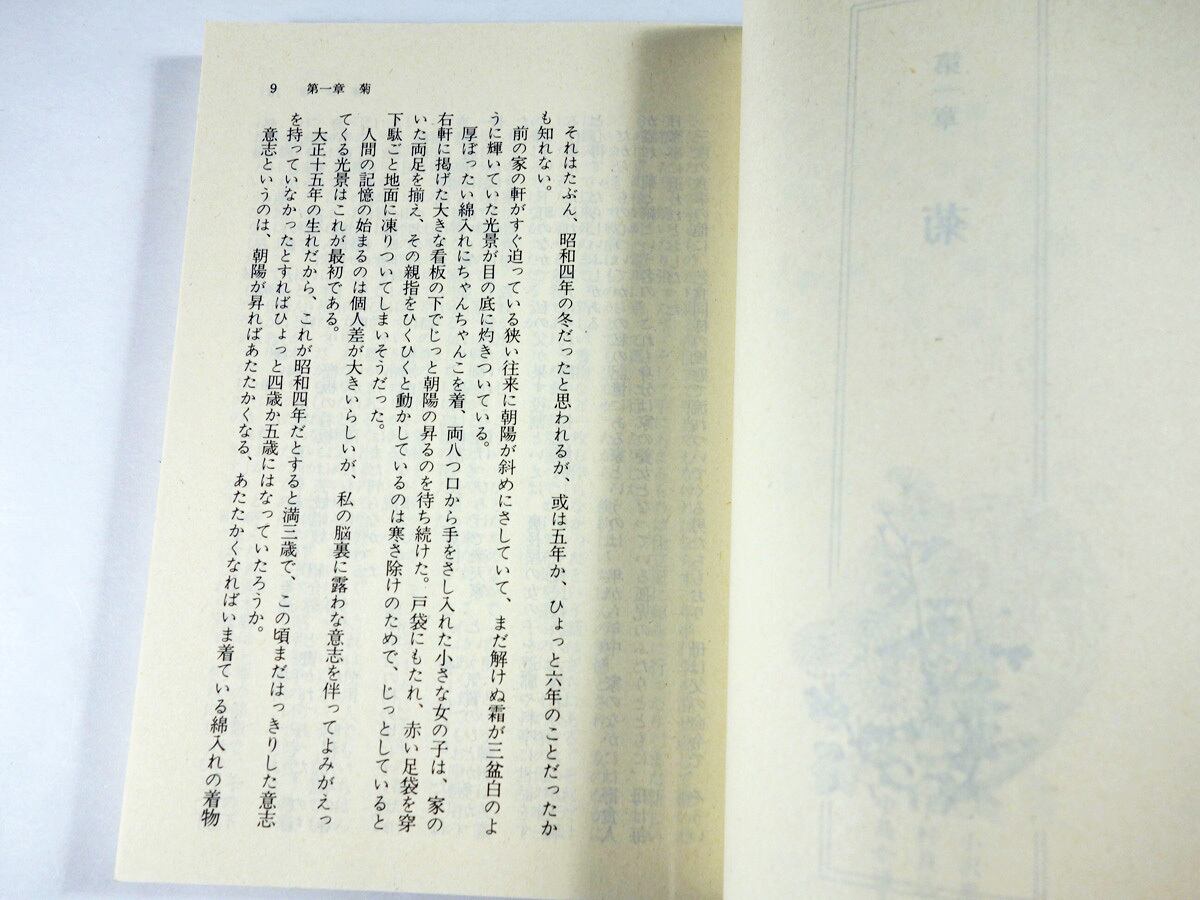 9　第一章　菊
それはたぶん、昭和四年の冬だったと思われるが、或は五年か、ひょっと六年のことだったか
も知れない。
前の家の軒がすぐ迫っている狭い往来に朝陽が斜めにさしていて、まだ解けぬ霜が三盆白のよ
うに輝いていた光景が目の底に灼きついている。
厚ぼったい綿入れにちゃんちゃんこを着、両八つ口から手をさし入れた小さな女の子は、家の
右軒に掲げた大きな看板の下でじっと朝陽の昇るのを待ち続けた。戸袋にもたれ、赤い足袋を穿
いた両足を揃え、その親指をひくひくと動かしているのは寒さ除けのためで、じっとしていると
下駄ごと地面に凍りついてしまいそうだった。
人間の記憶の始まるのは個人差が大きいらしいが　私の脳裏に露わな意志を伴ってよみがえっ
てくる光景はこれが最初である。
大正十五年の生れだから、これが昭和四年だとすると満三歳で、この頃まだはっきりした意志
を持っていなかったとすればひょっと四歳か五歳にはなっていたろうか。
意志というのは、朝陽が昇ればあたたかくなる、あたたかくなればいま着ている綿入れの着物
第一章
菊